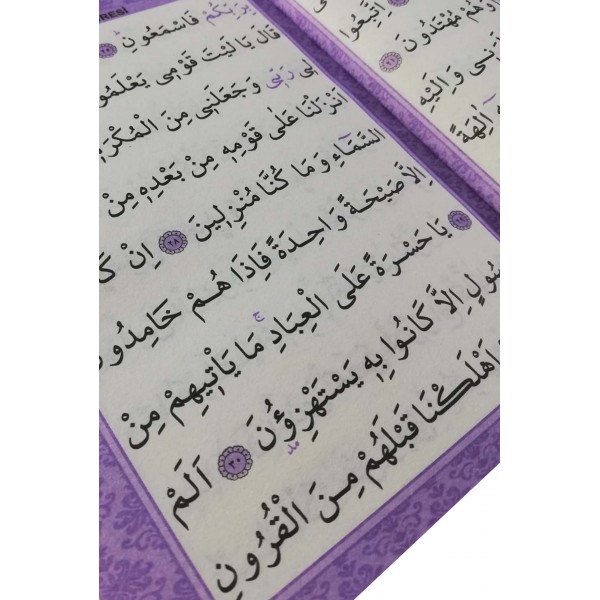 RESİ
بِرَبِّكُمْ فَاسْمَعُونِ ﴿٢٥﴾
قَالَ يَا لَيْتَ قَوْمِى يَعْلَمُو
لِى رَبِّى وَجَعَلَنِى مِنَ الْمُكْرَ
اَنْزَلْنَا عَلٰى قَوْمِهٖ مِنْ بَعْدِهٖ مِنْ
السَّمَاۤءِ وَمَا كُنَّا مُنْزِلٖينَ ﴿٢٨﴾ اِنْ كَا
اِلَّا صَيْحَةً وَاحِدَةً فَاِذَا هُمْ خَامِدُونَ ﴿٢٩﴾
يَا حَسْرَةً عَلَى الْعِبَادِ ج مَا يَاْتٖيهِمْ مِنْ
سُولٍ اِلَّا كَانُوا بِهٖ يَسْتَهْزِؤُ۫نَ ﴿٣٠﴾ اَلَمْ
اَهْلَكْنَا قَبْلَهُمْ مِنَ الْقُرُونِ
اِتَّبِعُوا
هُمْ مُهْتَدُونَ ﴿٢١﴾
رَنٖى وَاِلَيْهِ
اٰلِهَةً